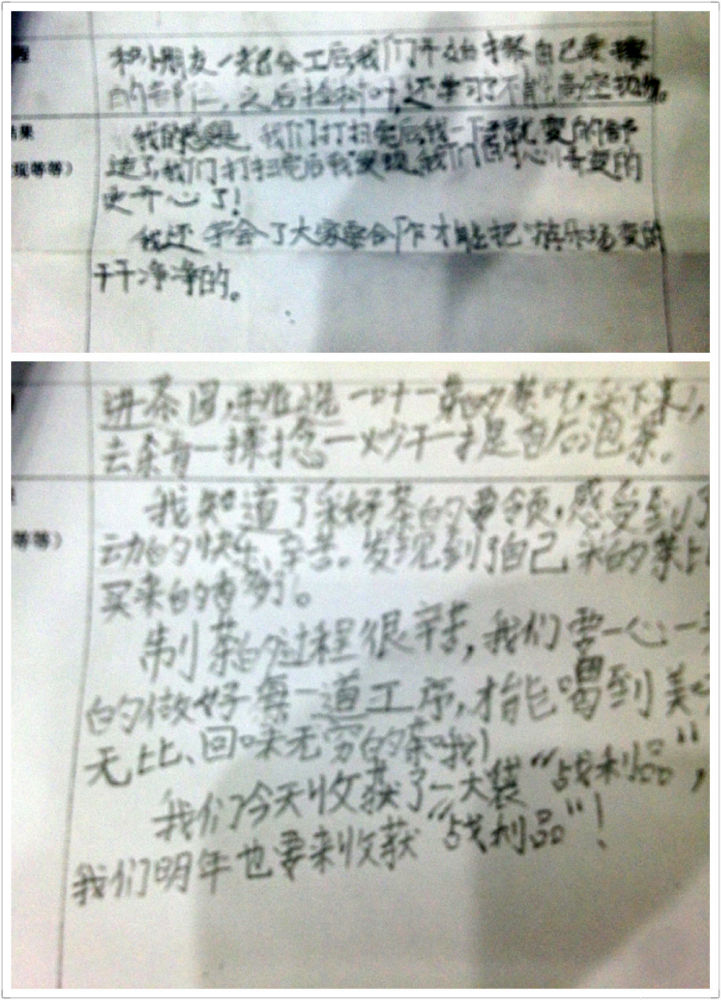 程
和小朋友一起分工后,我们开始擦自己要擦
的部位,之后捡树叶,还学习了不能高空抛物。
结果
我的感受是 我们打扫完后,我一下子就变的舒
现等等)
适了,我们打扫完后我发现,我们的心情变的
更开心了!
我还学会了大家要合作才能把娱乐场变的
干干净净的。
进茶园,挑选一叶一芽的茶叶,采下来,
去杀青一揉捻一炒干一提香后泡茶。
我知道了采好茶的要领,感受到了
等等)
动的快乐、辛苦。发现到了自己采的茶比
买来的香多了。
制茶的过程很辛苦,我们要一心一
的做好每一道工序,才能喝到美味
无比、回味无穷的茶哦!
我们今天收获了一大袋“战利品”,
我们明年也要来收获“战利品”!